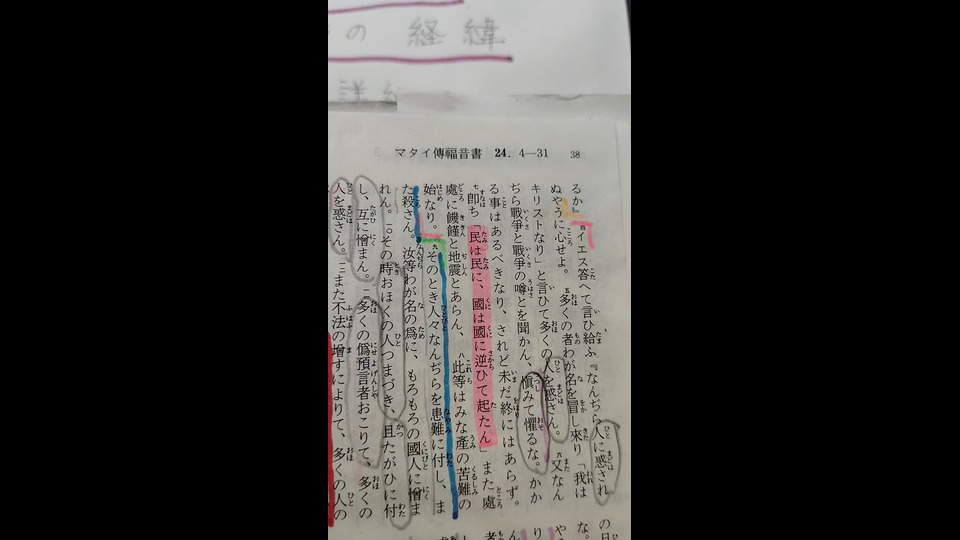 の 経 緯
詳
マタイ傳福音書 24. 4—31 38
るか』 四イエス答へて言ひ給ふ『なんぢら人に惑され
ぬやうに心せよ。 五多くの者わが名を冒し來り「我は
キリストなり」と言ひて多くの人を惑さん。 六又なん
ぢら戰爭と戰爭の噂とを聞かん、愼みて懼るな。かか
る事はあるべきなり、されど未だ終にはあらず。
七即ち「民は民に、國は國に逆ひて起たん」また處
處に饑饉と地震とあらん、 八此等はみな産の苦難の
始なり。 九そのとき人々なんぢらを患難に付し、ま
た殺さん。汝等わが名の爲に、もろもろの國人に憎ま
れん。 一〇その時おほくの人つまづき、且たがひに付
し、互に憎まん。 一一多くの僞預言者おこりて、多くの
人を惑さん。 一二また不法の増すによりて、多くの人の
の日
な。